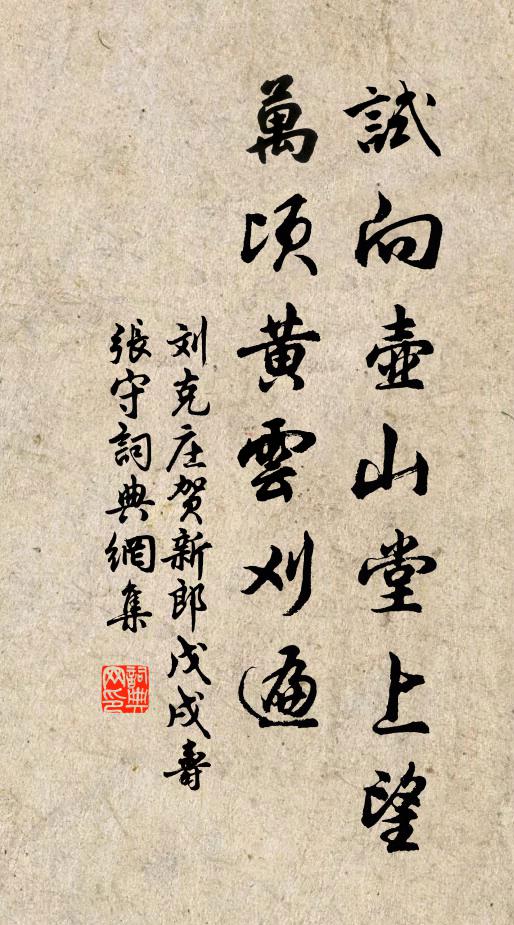 試向壺山堂上望
萬頃黄雲刈遍
刘克庄贺新郎戊戌壽
張守詞典網集
詞典网印